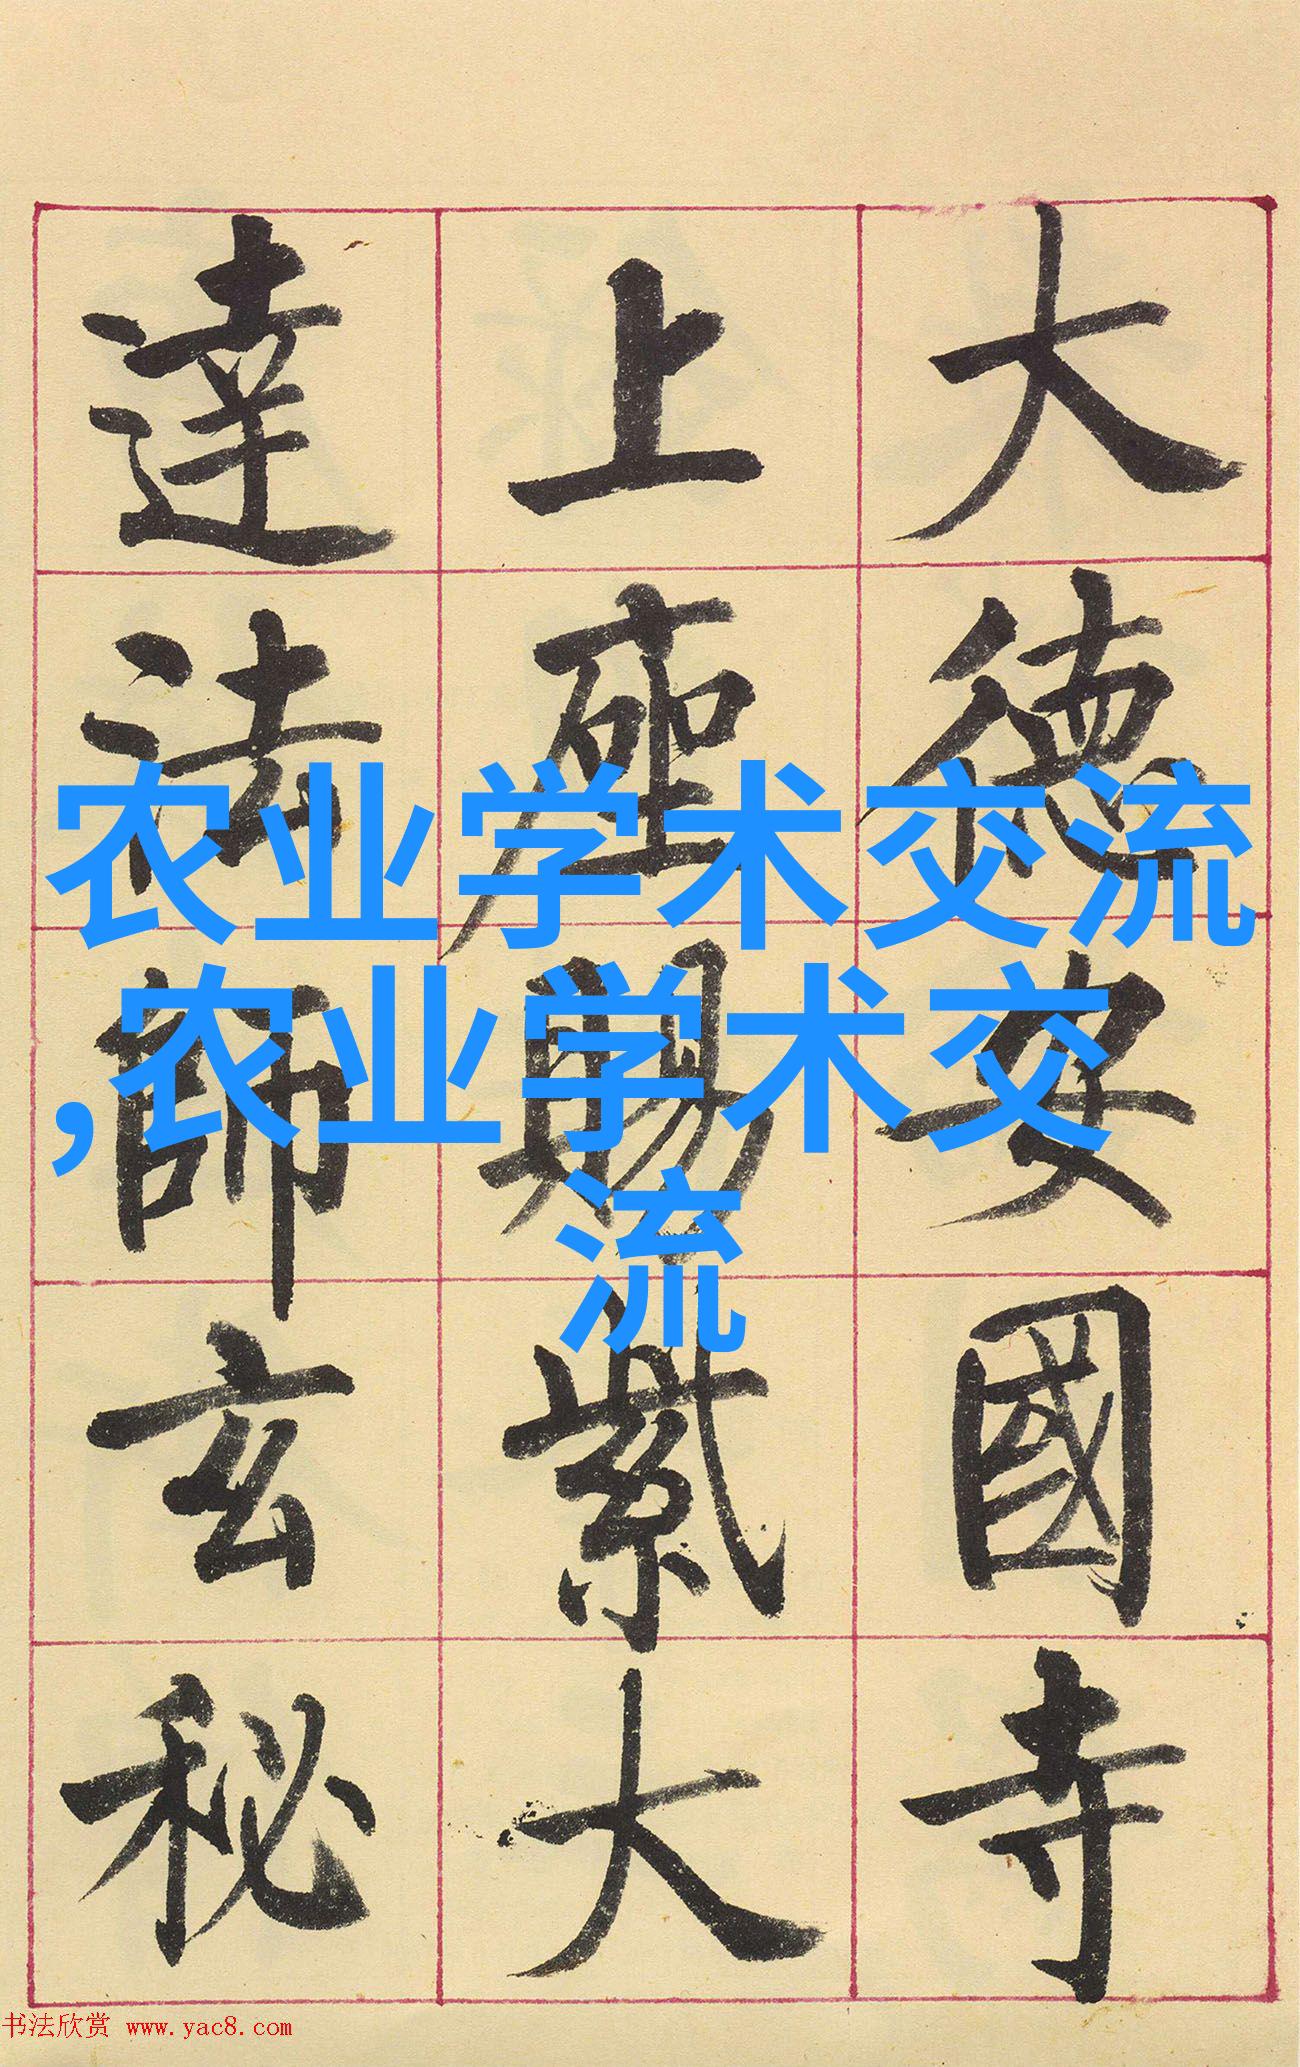 大德安國寺
上座賜紫大
達法師玄秘
农业学术交流
,农业学术交
流
书法欣赏 www.yac8.com